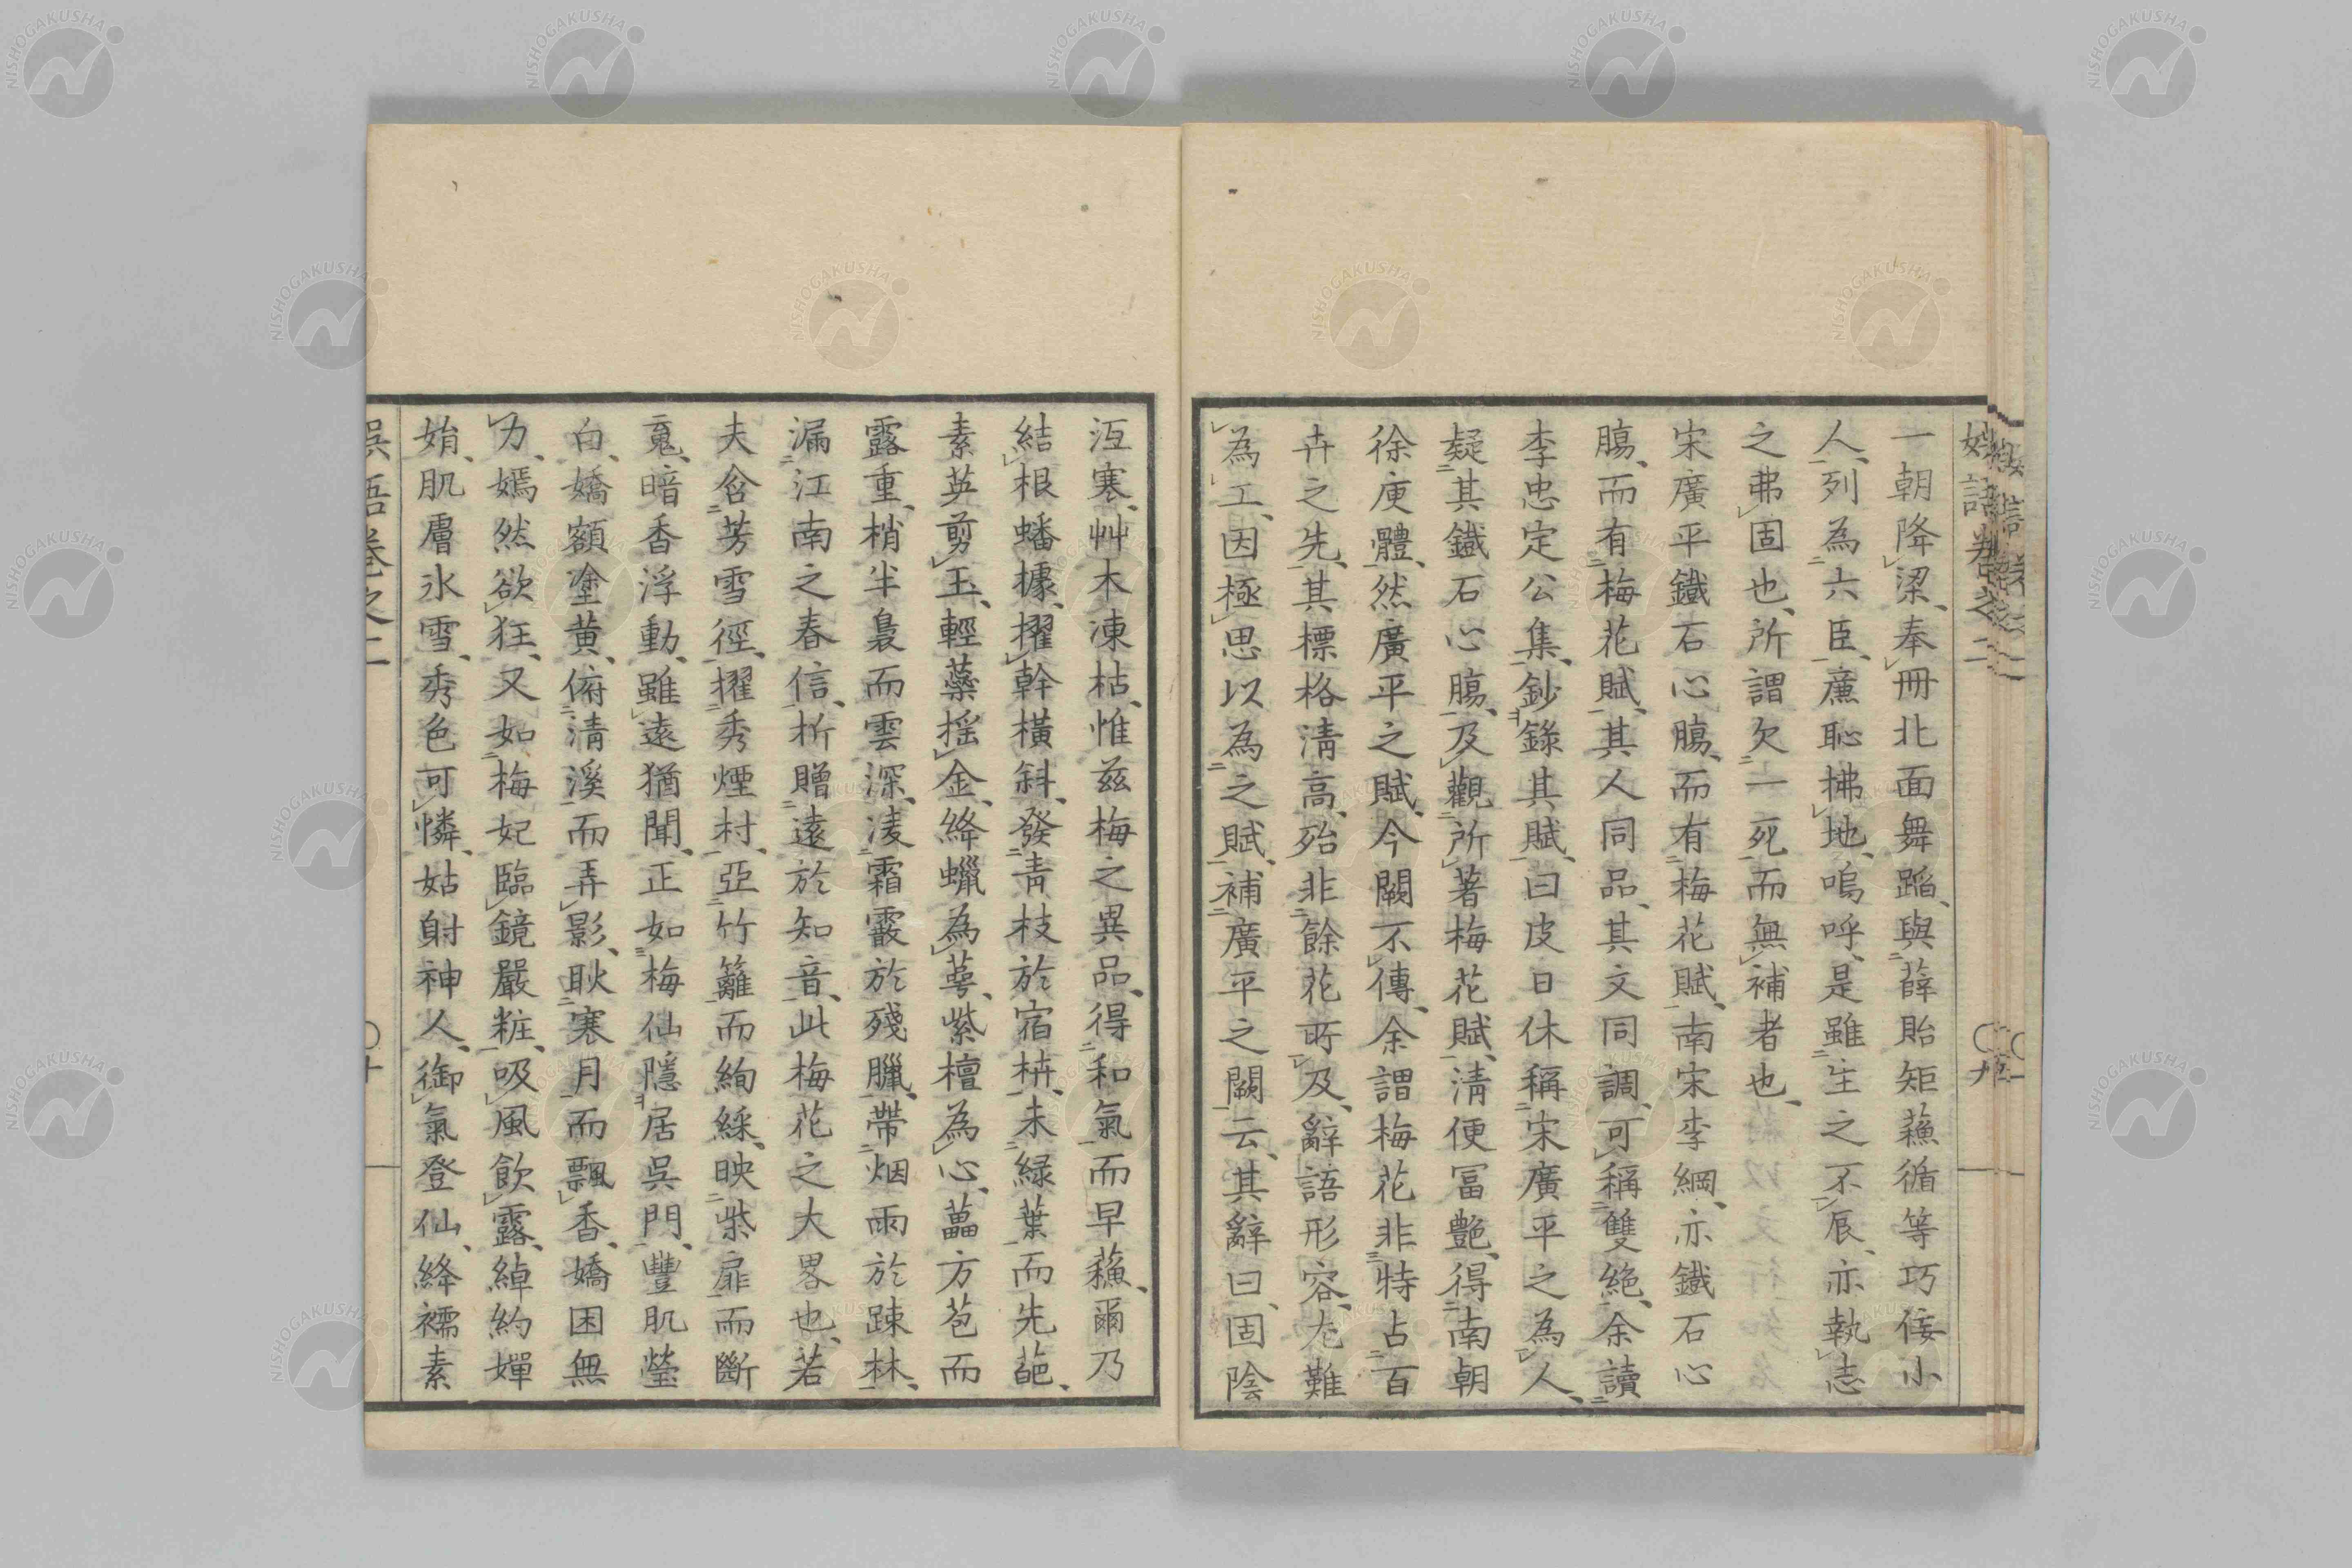 一朝降梁、奉冊北面舞蹈、與薛貽矩蘓循等巧佞小
人、列為六臣、廉恥拂地、嗚呼、是雖生之不辰、亦執志
之弗固也、所謂欠一死而無補者也、
宋廣平鐵石心膓、而有梅花賦、南宋李綱、亦鐵石心
膓、而有梅花賦、其人同品、其文同調、可稱雙絶、余讀
李忠定公集、鈔錄其賦、曰皮日休稱宋廣平之為人、
疑其鐵石心膓、及觀所著梅花賦、清便冨艷、得南朝
徐庾體、然廣平之賦、今闕不傳、余謂梅花非特占百
卉之先、其標格清高、殆非餘花所及、辭語形容、尤難
為工、因極思以為之賦、補廣平之闕云、其辭曰、固陰
沍寒、艸木凍枯、惟茲梅之異品、得和氣而早蘓、爾乃
結根蟠據、擢幹橫斜、發青枝於宿枿、未緑葉而先葩、
素英剪玉、輕蘂揺金、絳蠟為萼、紫檀為心、蘁方苞而
露重、梢半裊而雲深、凌霜霰於殘臘、帶烟雨於踈林、
漏江南之春信、折贈遠於知音、此梅花之大畧也、若
夫含芳雪徑、擢秀煙村、亞竹籬而絢綵、映柴扉而斷
䰟、暗香浮動、雖遠猶聞、正如梅仙隱居吳門、豐肌瑩
白、嬌額塗黄、俯清溪而弄影、耿寒月而飄香、嬌困無
力、嫣然欲狂、又如梅妃臨鏡嚴粧、吸風飲露、綽約嬋
娟、肌膚氷雪、秀色可憐、姑射神人、御氣登仙、絳襦素